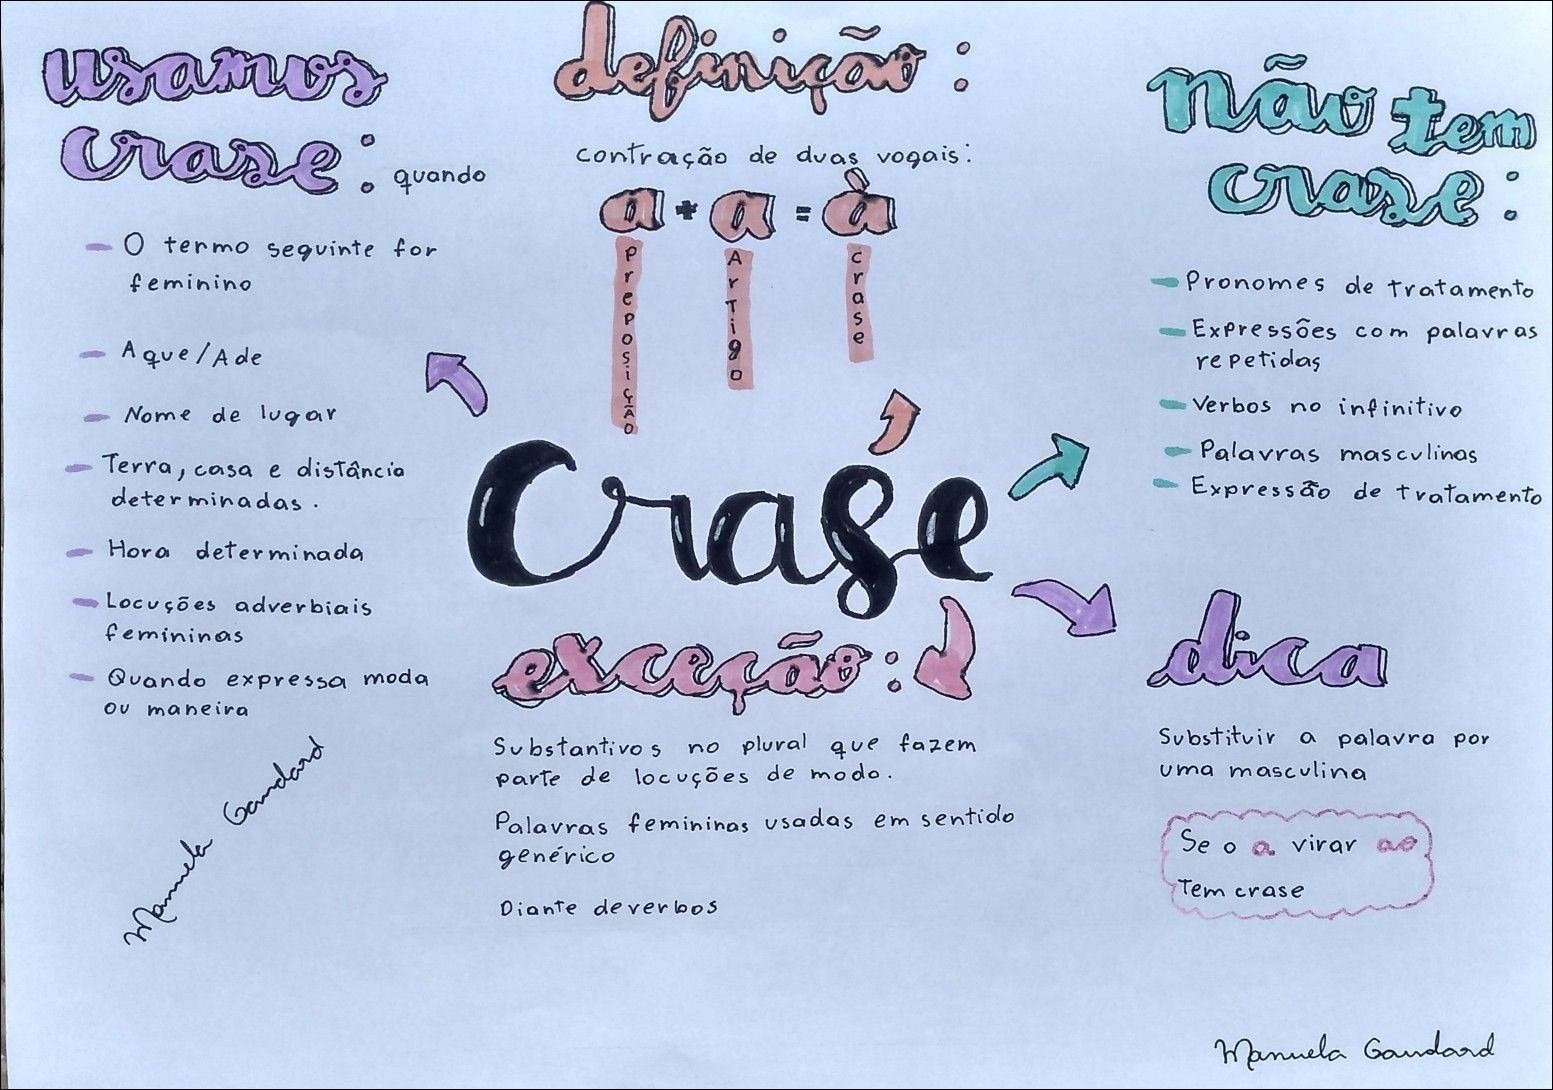 usamos
crase: quando
- O termo seguinte for
feminino
- A que/A de
- Nome de lugar
- Terra, casa e distância
determinadas.
- Hora determinada
- Locuções adverbiais
femininas
- Quando expressa moda
ou maneira
Manuela Gandard
definição:
contração de duas vogais:
a + a = à
Preposição
Artigo
crase
não tem
crase:
- Pronomes de tratamento
- Expressões com palavras
repetidas
- Verbos no infinitivo
- Palavras masculinas
- Expressão de tratamento
Crase
exceção:
Substantivos no plural que fazem
parte de locuções de modo.
Palavras femininas usadas em sentido
genérico
Diante de verbos
dica
Substituir a palavra por
uma masculina
Se o a virar ao
Tem crase
Manuela Gandard